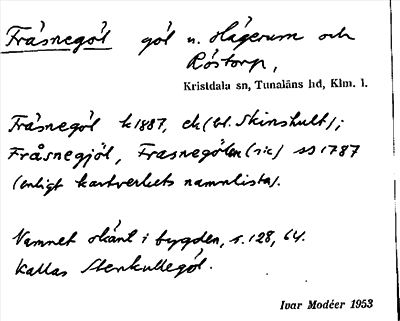 Fräsnegöl göl n. Hägerum och
Röstorp,
Kristdala sn, Tunaläns hd, Klm. l.
Fräsnegöl k1887, ek (bl. Skinshult);
Fråsnegjöl, Frasnegölen (sic) ss 1787
(enligt kartverkets namnlista).
Namnet okänt i bygden, s. 128, 64.
Kallas Stenkullegöl.
Ivar Modéer 1953